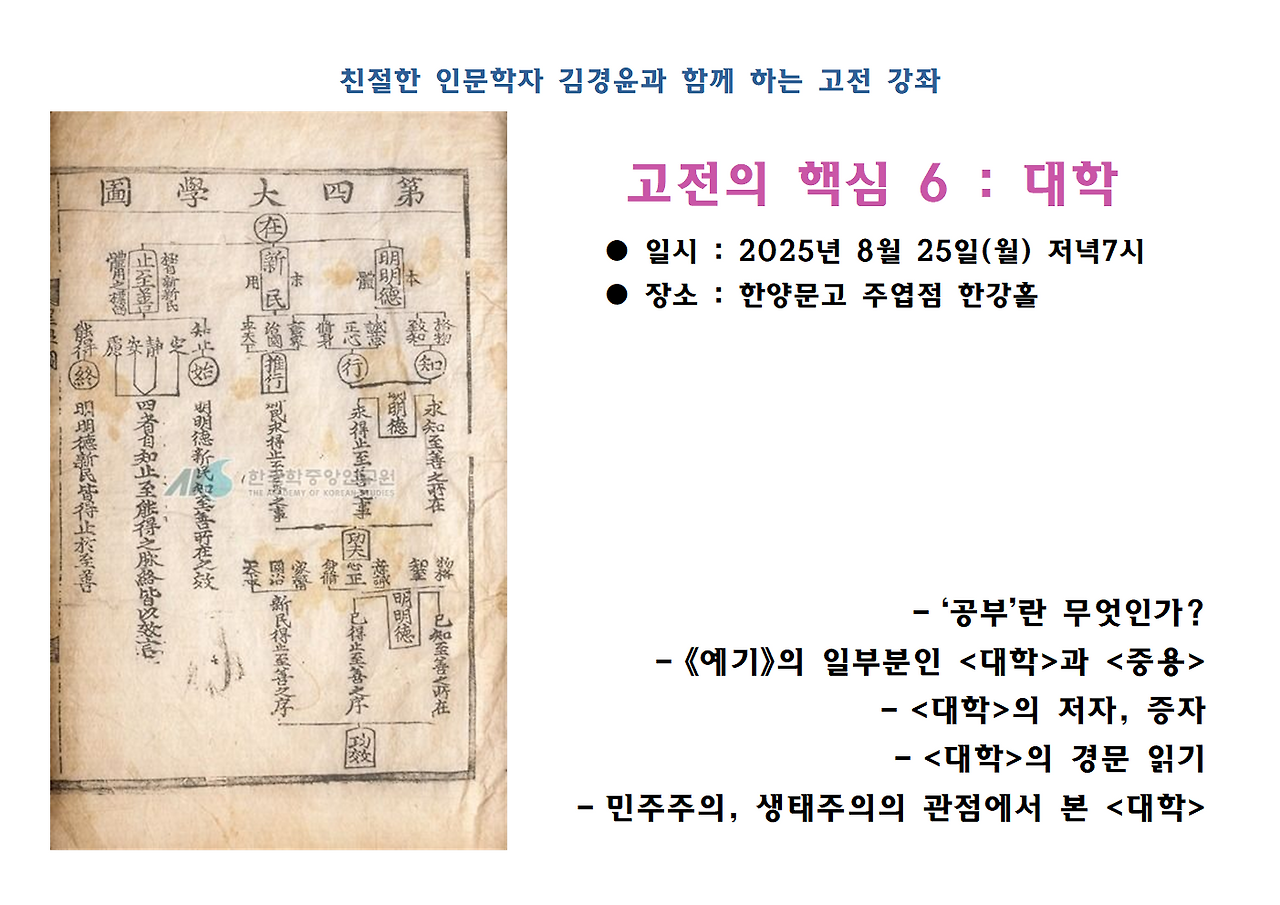 친절한 인문학자 김경윤과 함께 하는 고전 강좌
고전의 핵심 6 : 대학
● 일시 : 2025년 8월 25일(월) 저녁7시
● 장소 : 한양문고 주엽점 한강홀
- ‘공부’란 무엇인가?
- 《예기》의 일부분인 <대학>과 <중용>
- <대학>의 저자, 증자
- <대학>의 경문 읽기
- 민주주의, 생태주의의 관점에서 본 <대학>
第四大學圖
在
明明德
本
體
新民
末
用
止至善
體用之標的
格物
致知
誠意
正心
修身
齊家
治國
知止
定
靜
安
慮
能得
知
行
推行
始
終
明明德
求知至善之所在
求得止至善之事
明明德新民知至善所在之效
四者自知止至能得之脉絡皆以效言
明明德新民皆得止於至善
功夫
物格
意誠
心正
身修
家齊
國治
明明德
已知至善之所在
已得止至善之序
新民得止至善之序
功效
AKS
한국학중앙연구원
THE ACADEMY OF KOREAN STUDIES